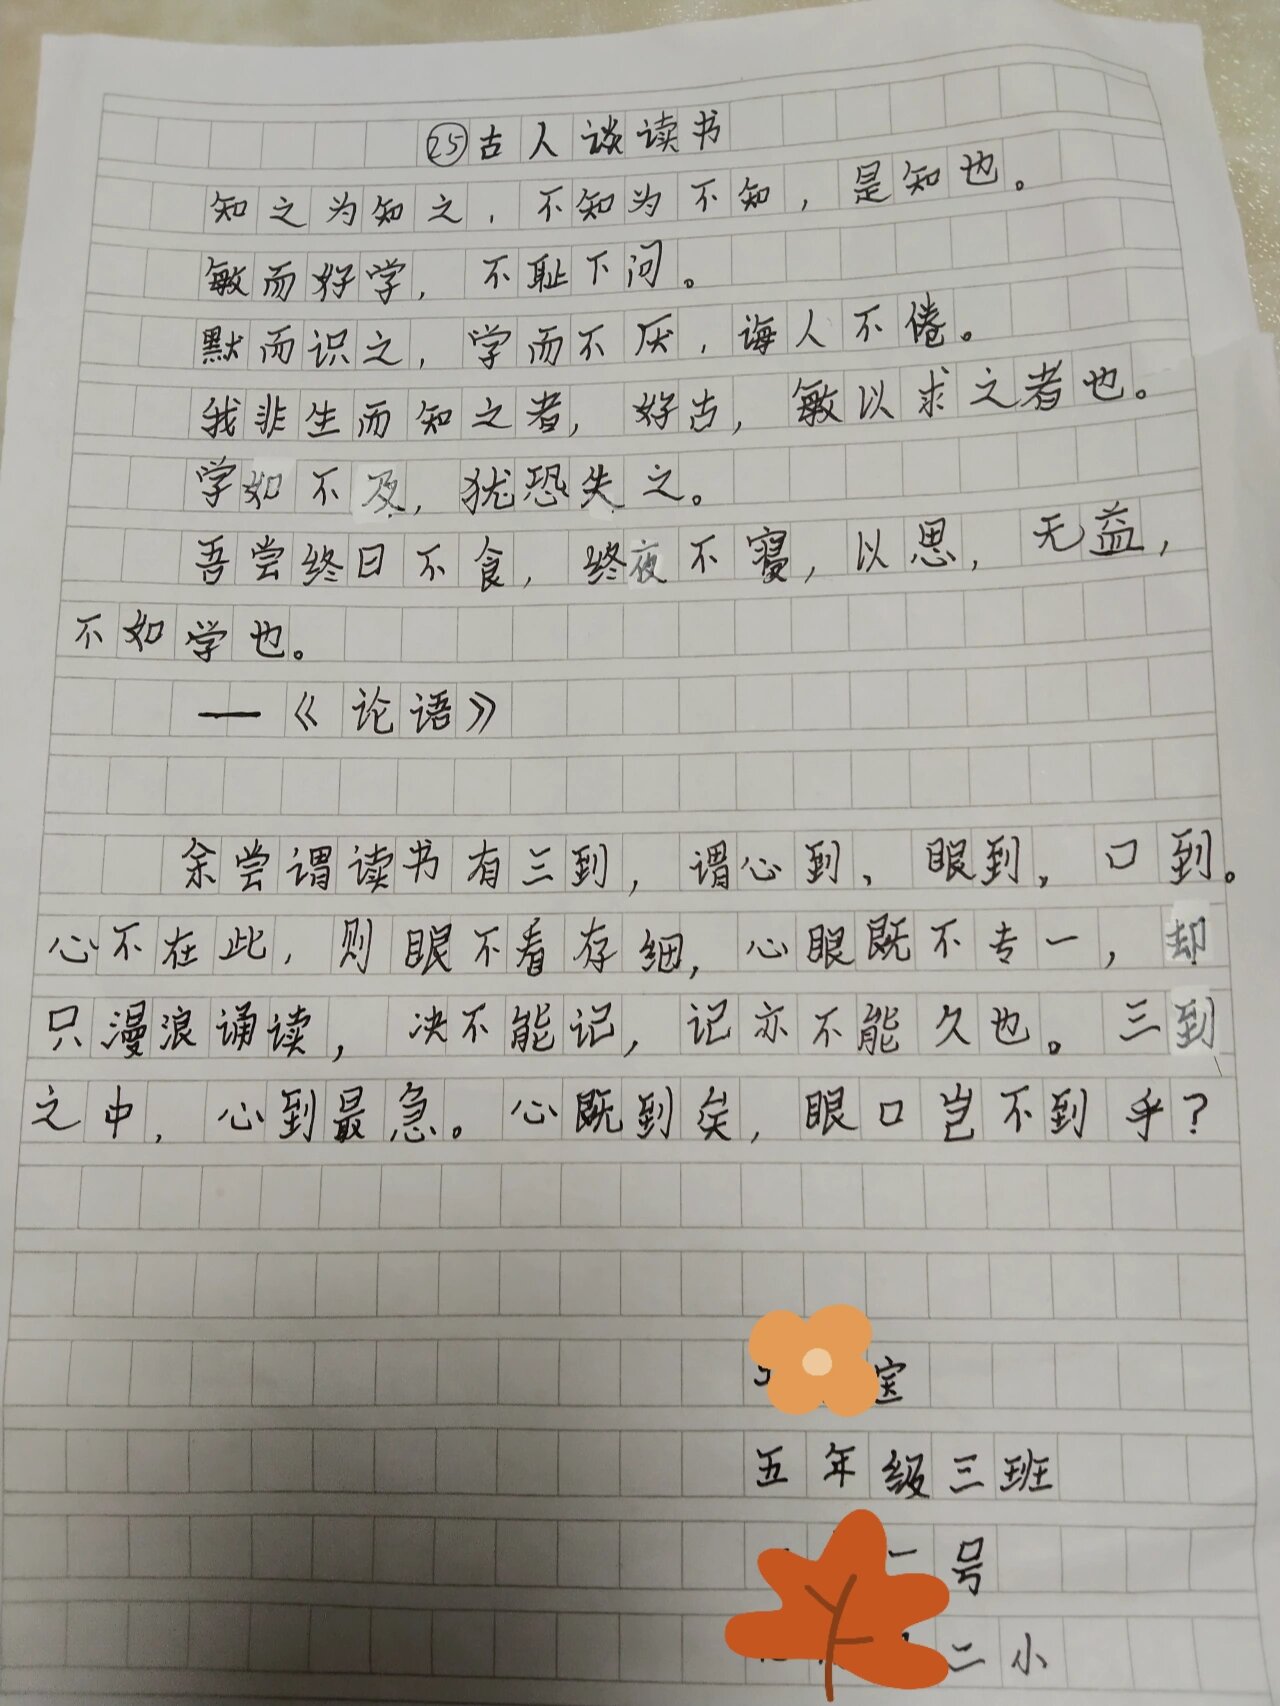 ㉕古人谈读书
知之为知之，不知为不知，是知也。
敏而好学，不耻下问。
默而识之，学而不厌，诲人不倦。
我非生而知之者，好古，敏以求之者也。
学如不及，犹恐失之。
吾尝终日不食，终夜不寝，以思，无益，
不如学也。
——《论语》
余尝谓读书有三到，谓心到、眼到，口到。
心不在此，则眼不看存细，心眼既不专一，却
只漫浪诵读，决不能记，记亦不能久也。三到
之中，心到最急。心既到矣，眼口岂不到乎？
五年级三班
一号
二小